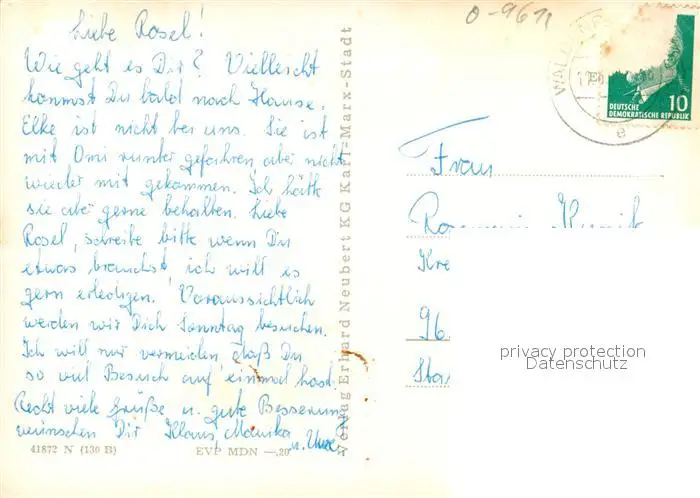 Liebe Rosel!
Wie geht es Dir? Vielleicht
kommst Du bald nach Hause.
Elke ist nicht bei uns. Sie ist
mit Omi runter gefahren aber nicht
wieder mit gekommen. Ich hätte
sie aber gerne behalten. Liebe
Rosel, schreibe bitte wenn Du
etwas brauchst, ich will es
gern erledigen. Voraussichtlich
werden wir Dich Sonntag besuchen.
Ich will nur vermeiden daß Du
so viel Besuch auf einmal hast.
Recht viele Grüße u. gute Besserung
wünschen Dir Klaus, Monika
u. Uwe
41872 N (130 B)
EVP MDN —.20
Verlag Erhard Neubert KG Karl-Marx-Stadt
0-9611
10
DEUTSCHE
DEMOKRATISCHE REPUBLIK
e
Frau
Kre
96
Sta
privacy protection
Datenschutz